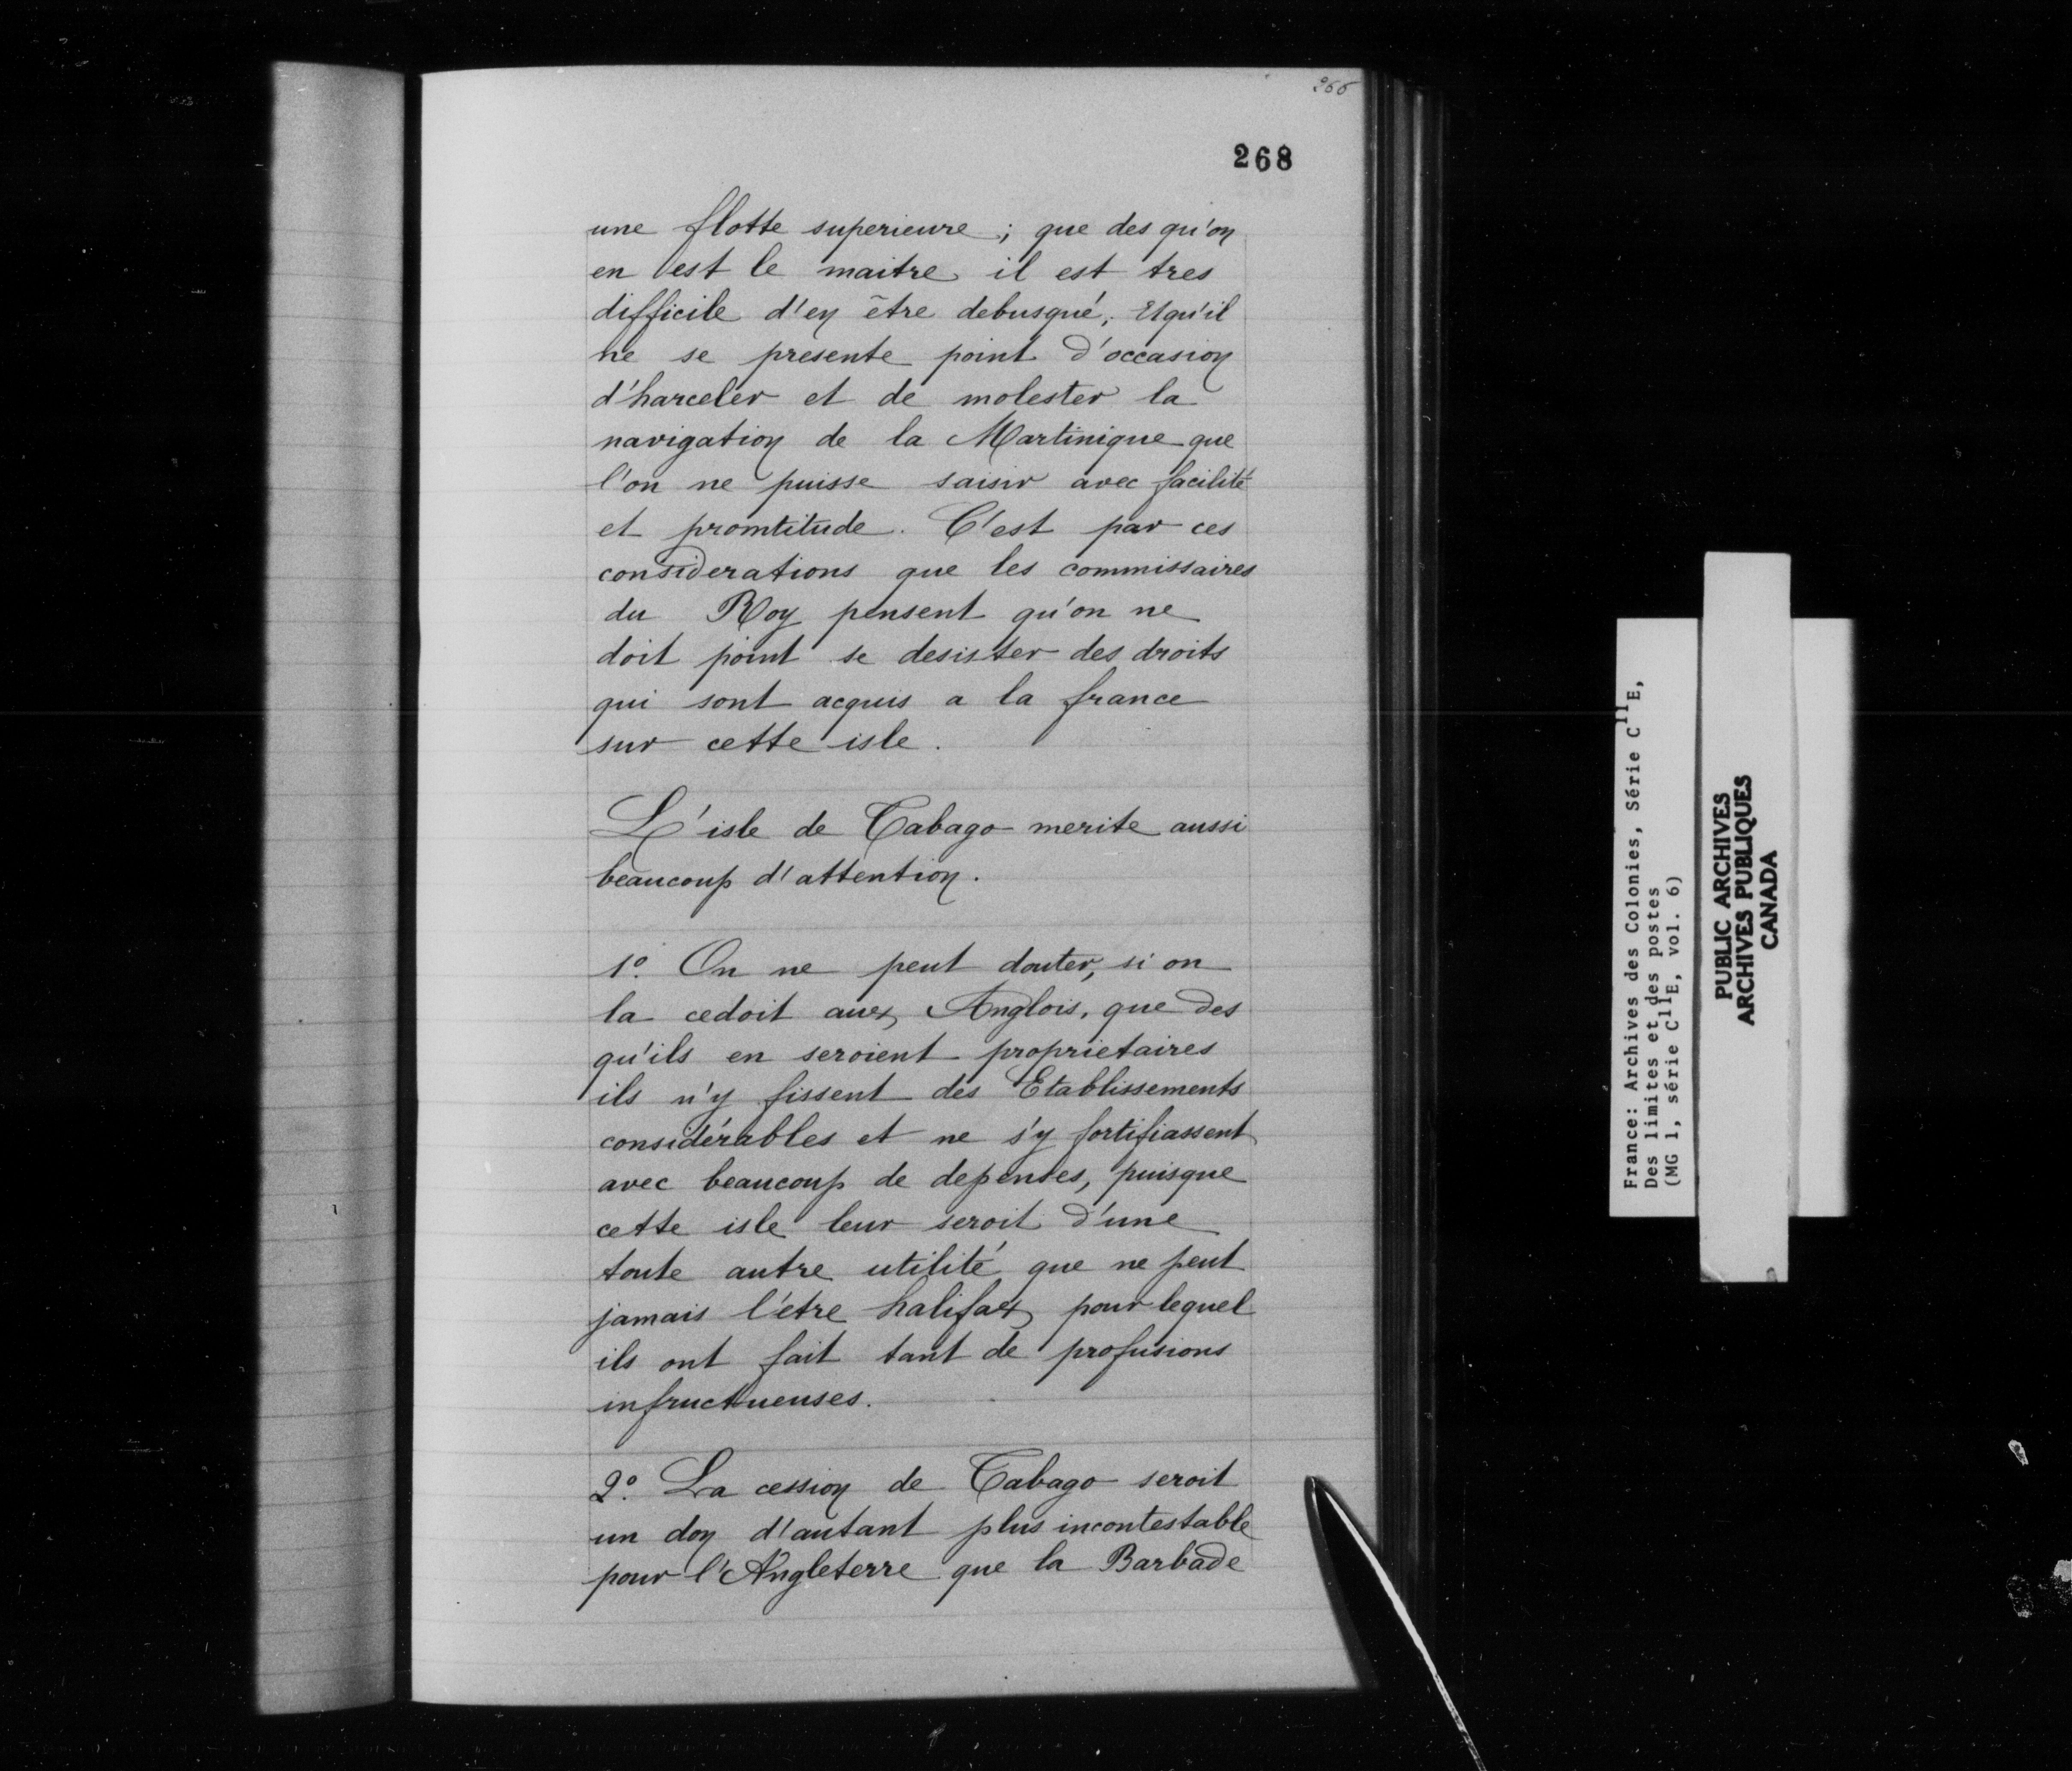 266
268
une flotte superieure ; que des qu'on
en est le maitre il est tres
difficile d'en être debusqué ; Et qu'il
ne se presente point d'occasion
d'harceler et de molester la
navigation de la Martinique que
l'on ne puisse saisir avec facilité
et promtitude. C'est par ces
considerations que les commissaires
du Roy pensent qu'on ne
doit point se desister des droits
qui sont acquis a la france
sur cette isle.
L'isle de Tabago merite aussi
beaucoup d'attention.
1º. On ne peut douter, si on
la cedoit aux Anglois, que des
qu'ils en seroient proprietaires
ils n'y fissent des Etablissements
considérables et ne s'y fortifiassent
avec beaucoup de depenses, puisque
cette isle leur seroit d'une
toute autre utilité que ne peut
jamais l'étre halifax pour lequel
ils ont fait tant de profusions
infructueuses.
2º. La cession de Tabago seroit
un don d'autant plus incontestable
pour l'Angleterre que la Barbade
France: Archives des Colonies, Série C11E,
Des limites et des postes
(MG 1, série C11E, vol. 6)
PUBLIC ARCHIVES
ARCHIVES PUBLIQUES
CANADA